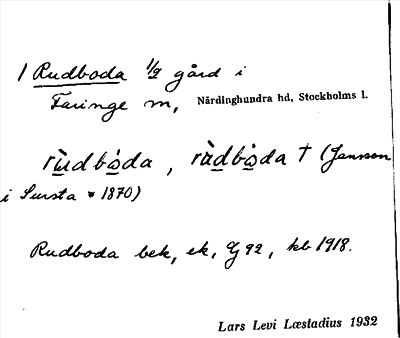 1 Rudboda 1/2 gård i
Faringe m, Närdinghundra hd, Stockholms l.
rùdbòda, ràdbòda † (Jansson
i Sursta * 1870)
Rudboda bek, ek, Gg 92, kb 1918.
Lars Levi Læstadius 1932